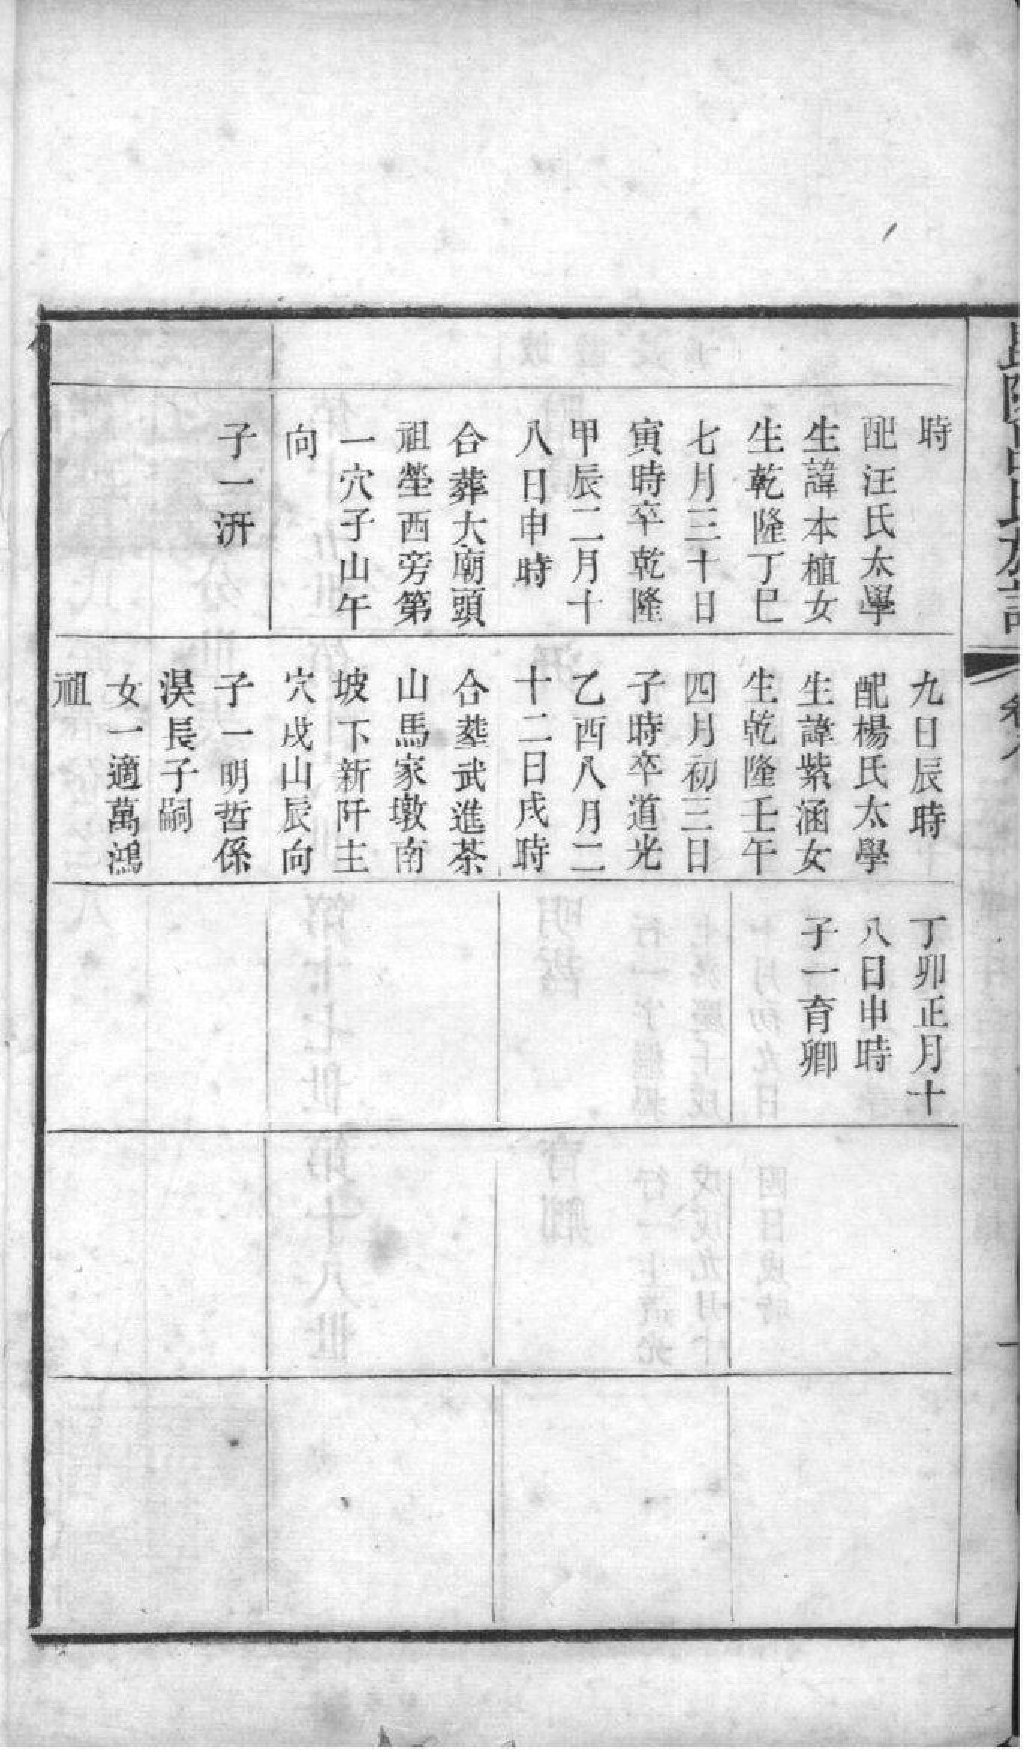 時
配汪氏太學
生諱本植女
生乾隆丁巳
七月三十日
寅時卒乾隆
甲辰二月十
八日申時
合葬大廟頭
祖塋西旁第
一穴子山午
向
子一汧
九日辰時
配楊氏太學
生諱紫涵女
生乾隆壬午
四月初三日
子時卒道光
乙酉八月二
十二日戌時
合塟武進茶
山馬家墩南
坡下新阡主
穴戌山辰向
子一明哲係
淏長子嗣
女一適萬鴻
祖
丁卯正月十
八日申時
子一育卿